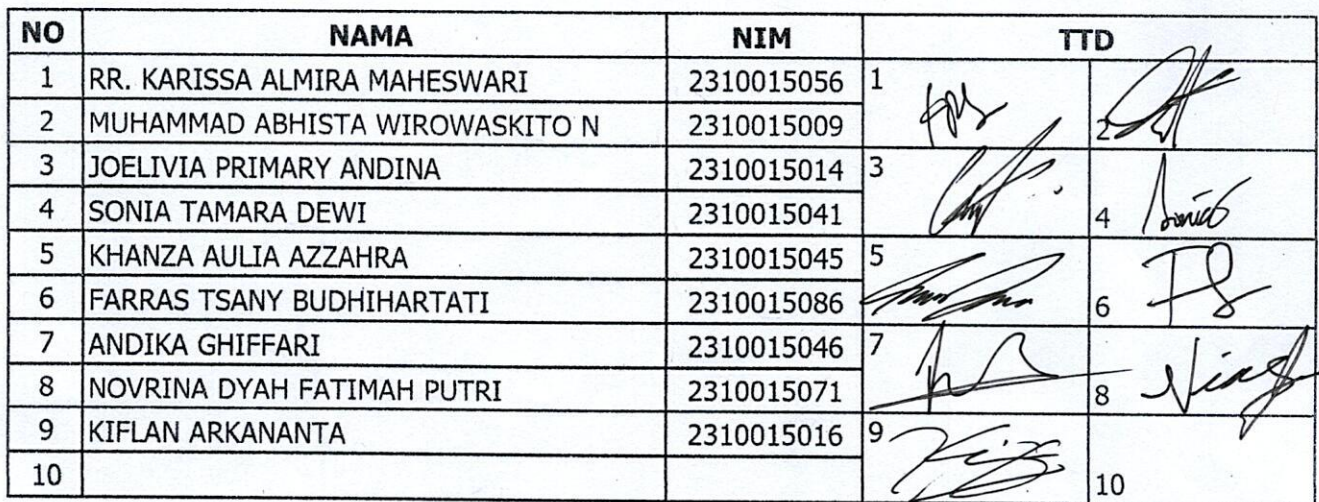 NO NAMA NIM TTD
1 RR. KARISSA ALMIRA MAHESWARI 2310015056 1
2 MUHAMMAD ABHISTA WIROWASKITO N 2310015009 2
3 JOELIVIA PRIMARY ANDINA 2310015014 3
4 SONIA TAMARA DEWI 2310015041 4
5 KHANZA AULIA AZZAHRA 2310015045 5
6 FARRAS TSANY BUDHIHARTATI 2310015086 6
7 ANDIKA GHIFFARI 2310015046 7
8 NOVRINA DYAH FATIMAH PUTRI 2310015071 8
9 KIFLAN ARKANANTA 2310015016 9
10 10